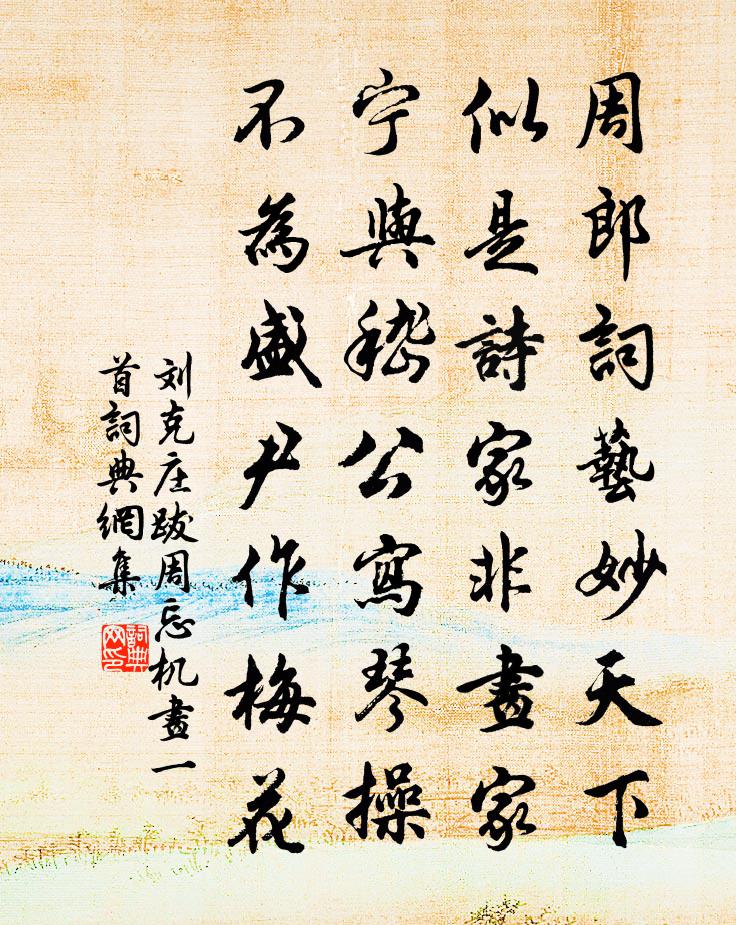 周郎詞藝妙天下
似是詩家非畫家
宁與嵇公寫琴操
不為盛尹作梅花
刘克庄跋周忘机畫一
首詞典網集
詞典
网印